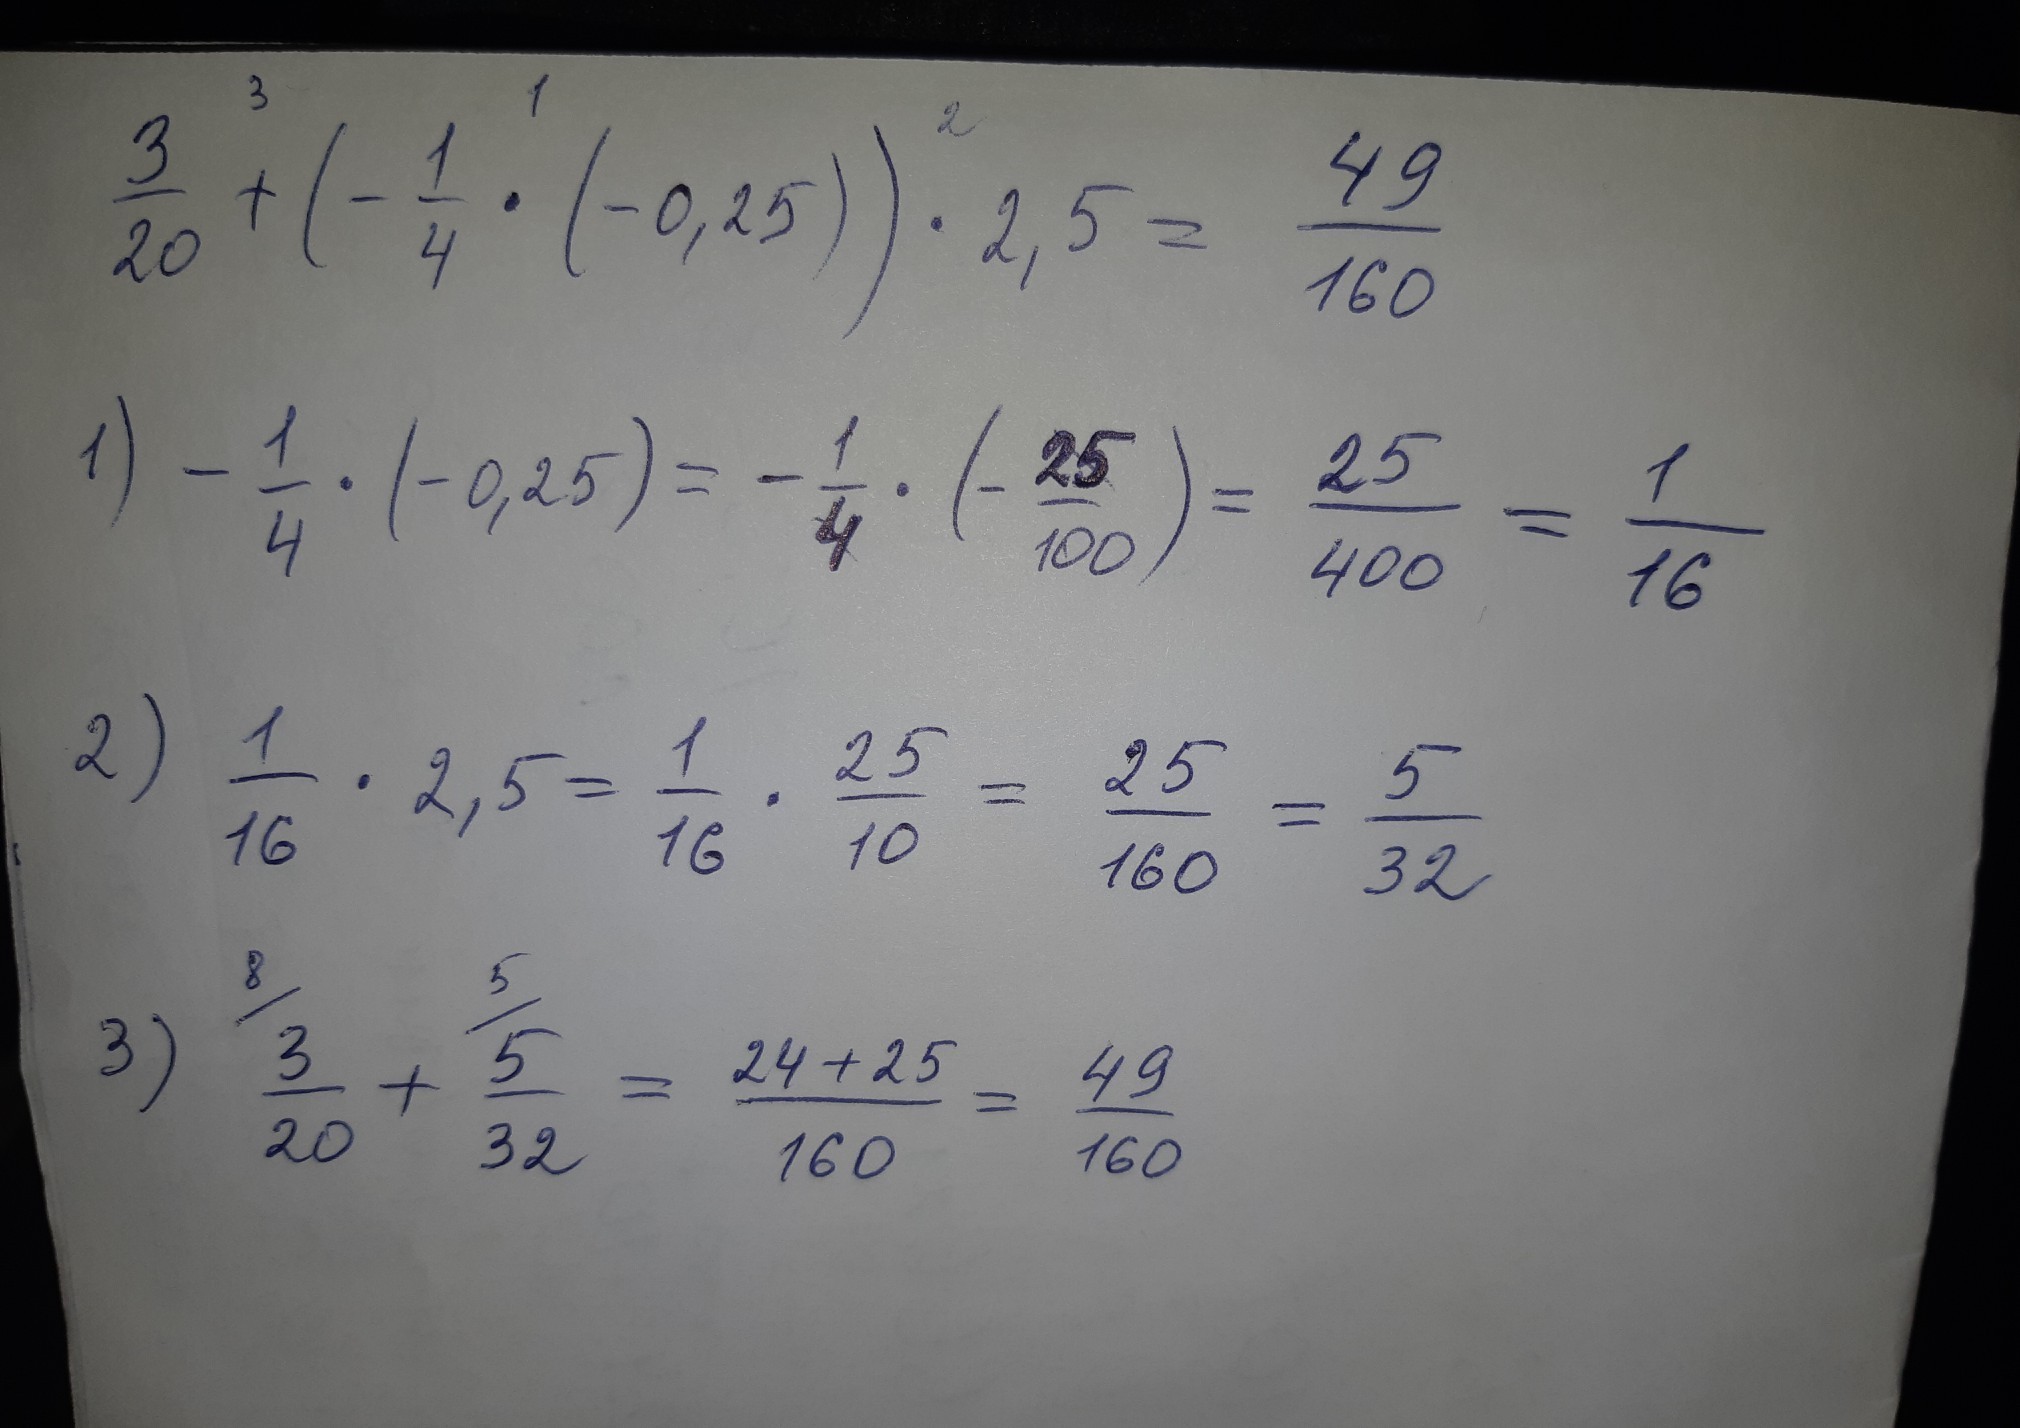 3 1 2
3/20 + (-1/4 · (-0,25)) · 2,5 = 49/160
1) -1/4 · (-0,25) = -1/4 · (-25/100) = 25/400 = 1/16
2) 1/16 · 2,5 = 1/16 · 25/10 = 25/160 = 5/32
8/ 5/
3) 3/20 + 5/32 = 24+25/160 = 49/160